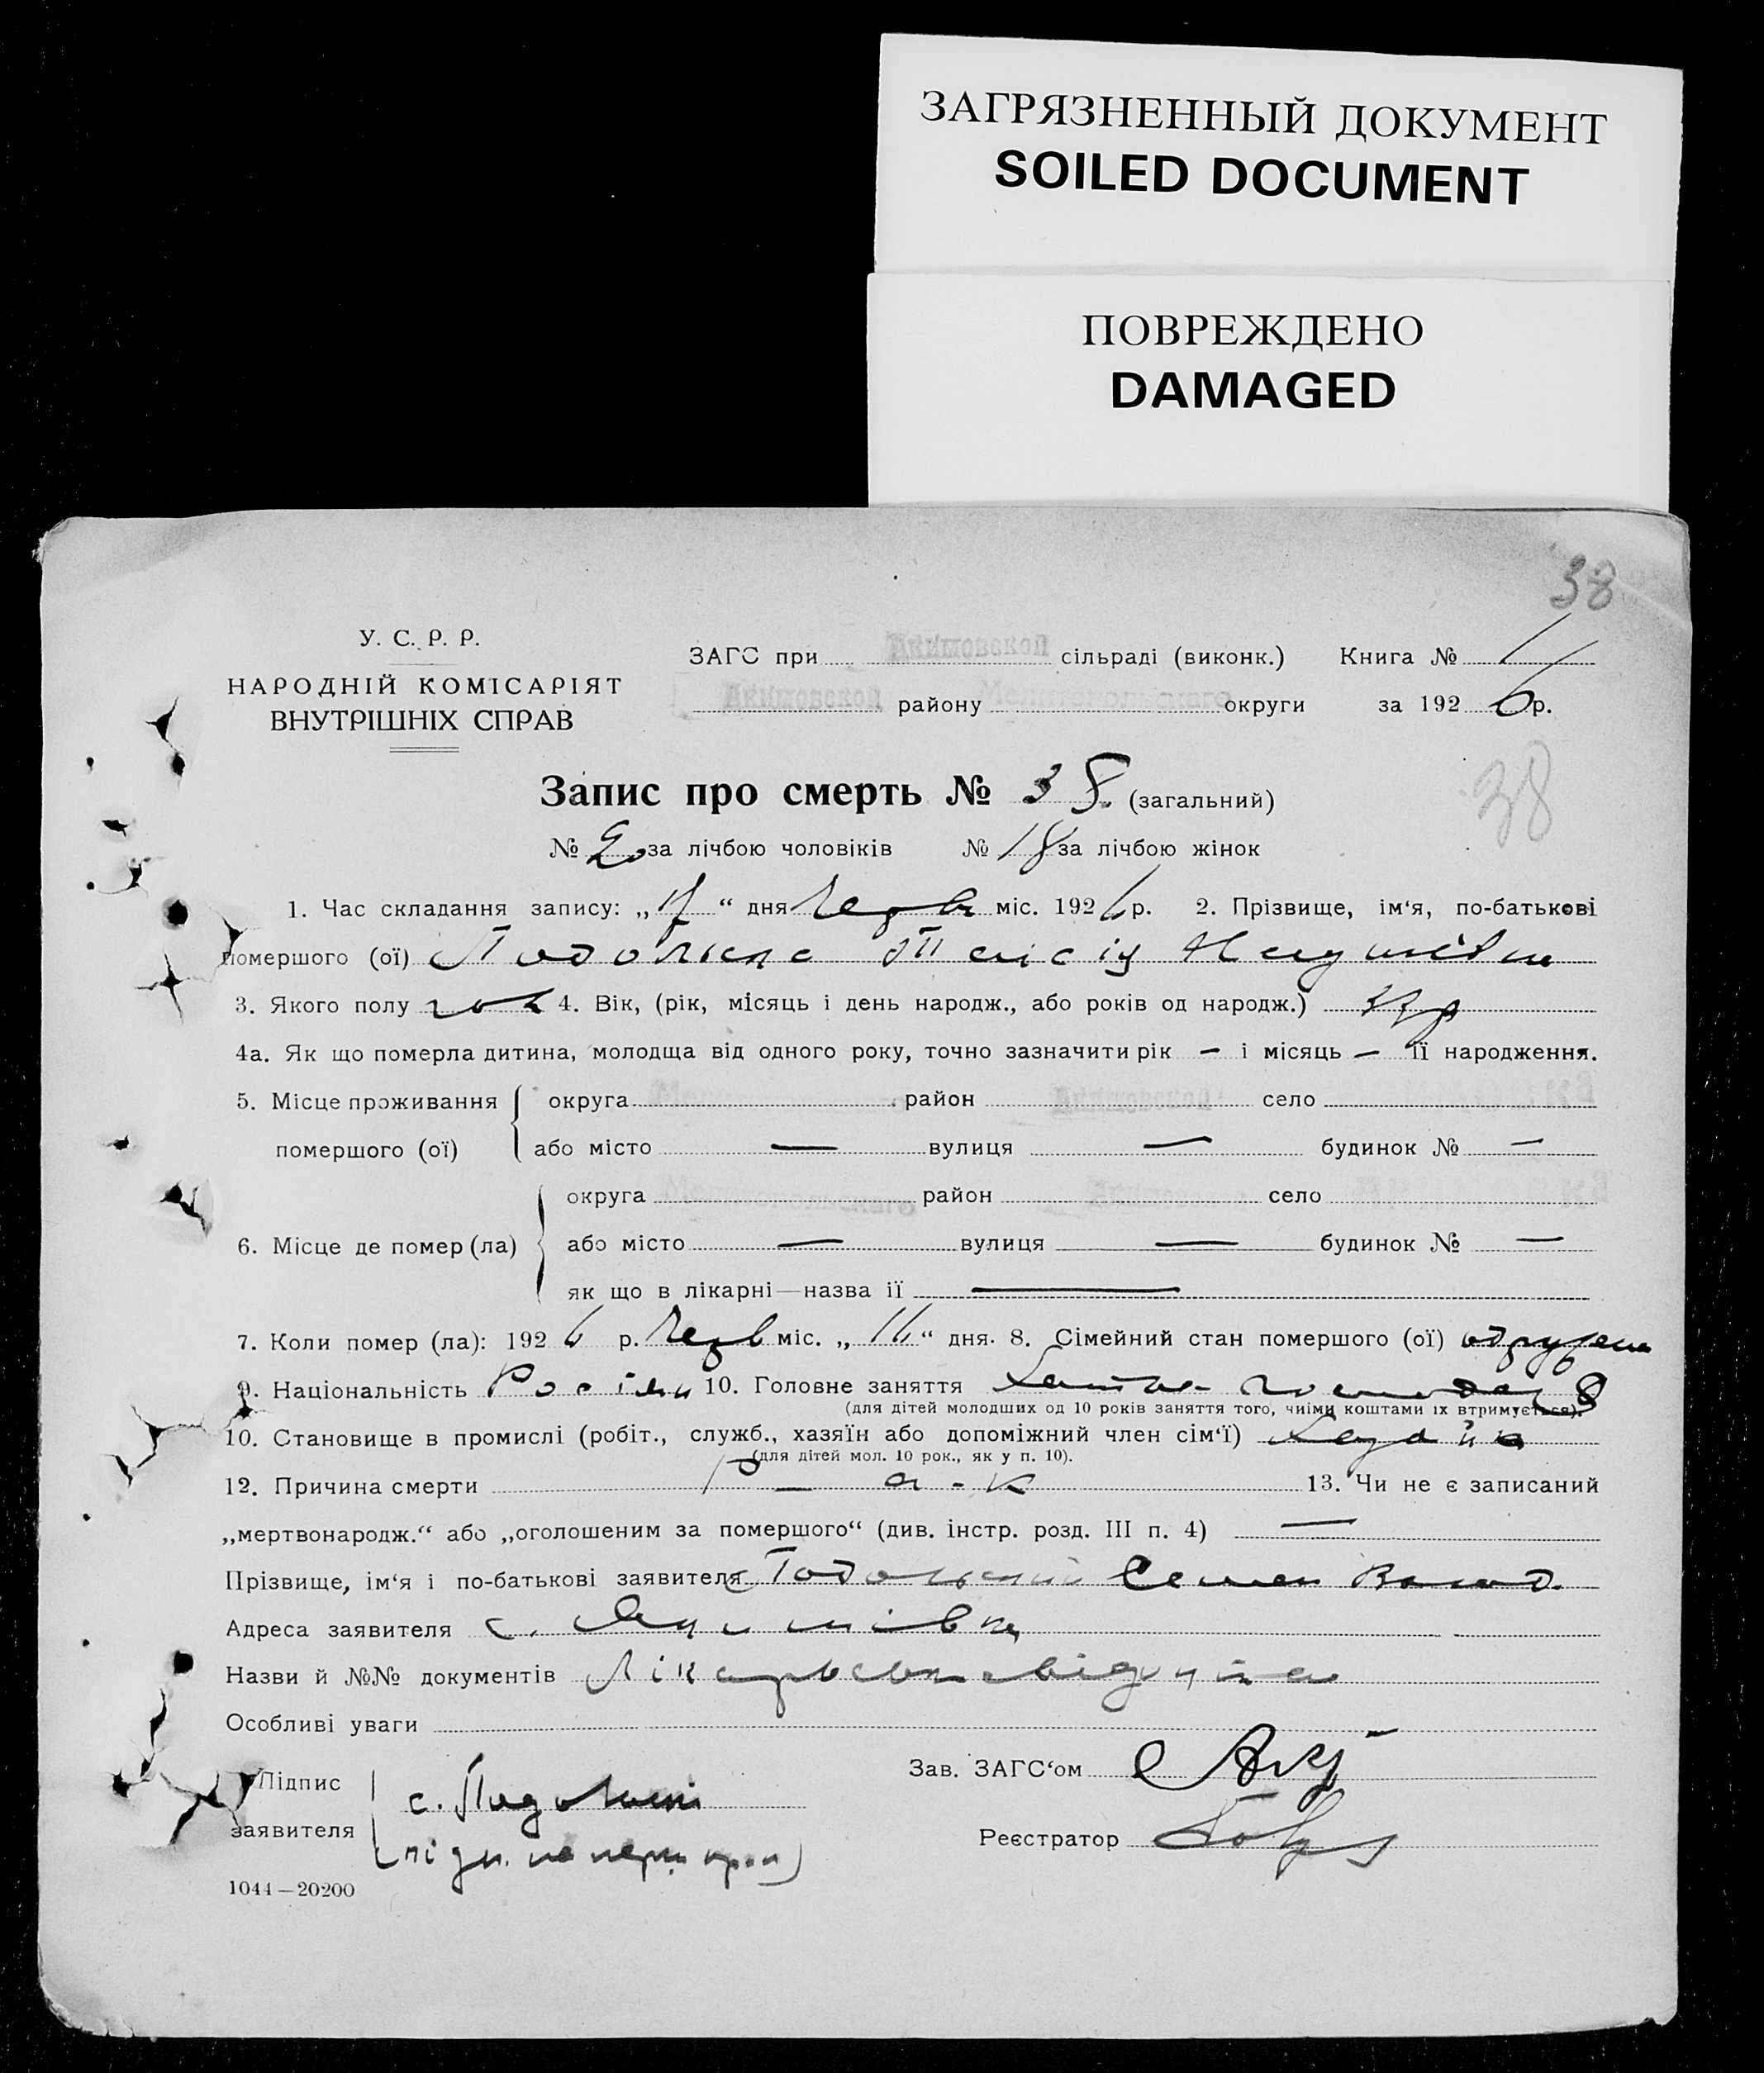 ЗАГРЯЗНЕННЫЙ ДОКУМЕНТ
SOILED DOCUMENT
ПОВРЕЖДЕНО
DAMAGED
38
У. С. Р. Р.
НАРОДНІЙ КОМІСАРІЯТ
ВНУТРІШНІХ СПРАВ
ЗАГС при Якимовской сільраді (виконк.) Книга № 1
Якимовской району Мелитопольского округи за 1926 р.
Запис про смерть № 38 (загальний)
38
№ 20 за лічбою чоловіків № 18 за лічбою жінок
1. Час складання запису: „17“ дня Черв міс. 1926 р. 2. Прізвище, ім'я, по-батькові
помершого (ої) Подольска Таісія
3. Якого полу жін 4. Вік, (рік, місяць і день народж., або років од народж.)
4а. Як що померла дитина, молодща від одного року, точно зазначити рік — і місяць — її народження.
5. Місце проживання округа район Якимовской село
помершого (ої) або місто — вулиця — будинок № —
округа Мелитопольского район село
6. Місце де помер (ла) або місто — вулиця — будинок № —
як що в лікарні—назва ії —
7. Коли помер (ла): 1926 р. Черв міс. „16“ дня. 8. Сімейний стан помершого (ої) одружена
9. Національність Росіян 10. Головне заняття Хатнє господар
(для дітей молодших од 10 років заняття того, чиїми коштами їх втримується).
10. Становище в промислі (робіт., служб., хазяїн або допоміжний член сім'ї) Хазяйка
(для дітей мол. 10 рок., як у п. 10).
12. Причина смерти Р—а-к 13. Чи не є записаний
„мертвонародж.“ або „оголошеним за помершого“ (див. інстр. розд. III п. 4) —
Прізвище, ім'я і по-батькові заявителя Подольский Семен Волод.
Адреса заявителя с. Якимівка
Назви й №№ документів Лікарське свідоцтво
Особливі уваги
Підпис
с. Подольскі
заявителя
(підп. на перш прим)
Зав. ЗАГС'ом
Реєстратор
1044—20200